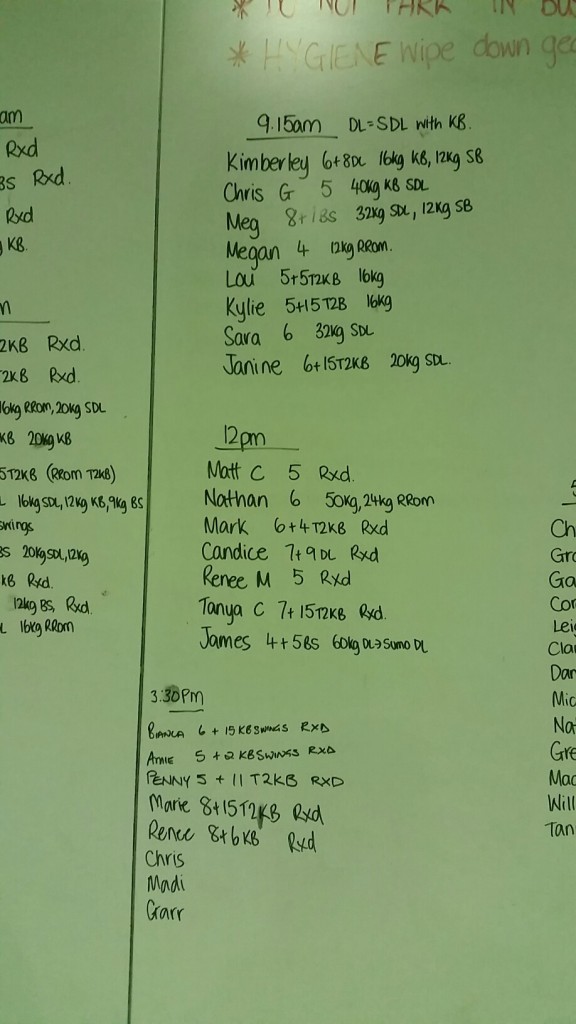 * TO NOT PARK IN BUS
* HYGIENE wipe down gea
am
Rxd
BS Rxd.
Rxd
KB.
2KB Rxd.
T2KB Rxd.
16kg RRom, 20kg SDL
KB 20kg KB
5T2KB (RRom T2KB)
L 16kg SDL, 12kg KB, 9kg BS
swings
BS 20kg SDL, 12kg
KB Rxd.
12kg BS, Rxd.
L 16kg RRom
9.15am DL=SDL with KB.
Kimberley 6+8DL 16kg KB, 12kg SB
Chris G 5 40kg KB SDL
Meg 8+1BS 32kg SDL, 12kg SB
Megan 4 12kg RRom.
Lou 5+5T2KB 16kg
Kylie 5+15T2B 16kg
Sara 6 32kg SDL
Janine 6+15T2KB 20kg SDL.
12pm
Matt C 5 Rxd.
Nathan 6 50kg, 24kg RRom
Mark 6+4T2KB Rxd
Candice 7+9DL Rxd
Renee M 5 Rxd
Tanya C 7+15T2KB Rxd.
James 4+5BS 60kg DL→Sumo DL
3.30pm
BIANCA 6 + 15 KBSWINGS RXD
AMIE 5 + 2 KBSWINGS RXD
PENNY 5 + 11 T2KB RXD
Marie 8+15T2KB Rxd
Renee 8+6KB Rxd
Chris
Madi
Garr
5
Ch
Gra
Ga
Cor
Leig
Clai
Dan
Mic
Na
Gre
Mad
Will
Tan